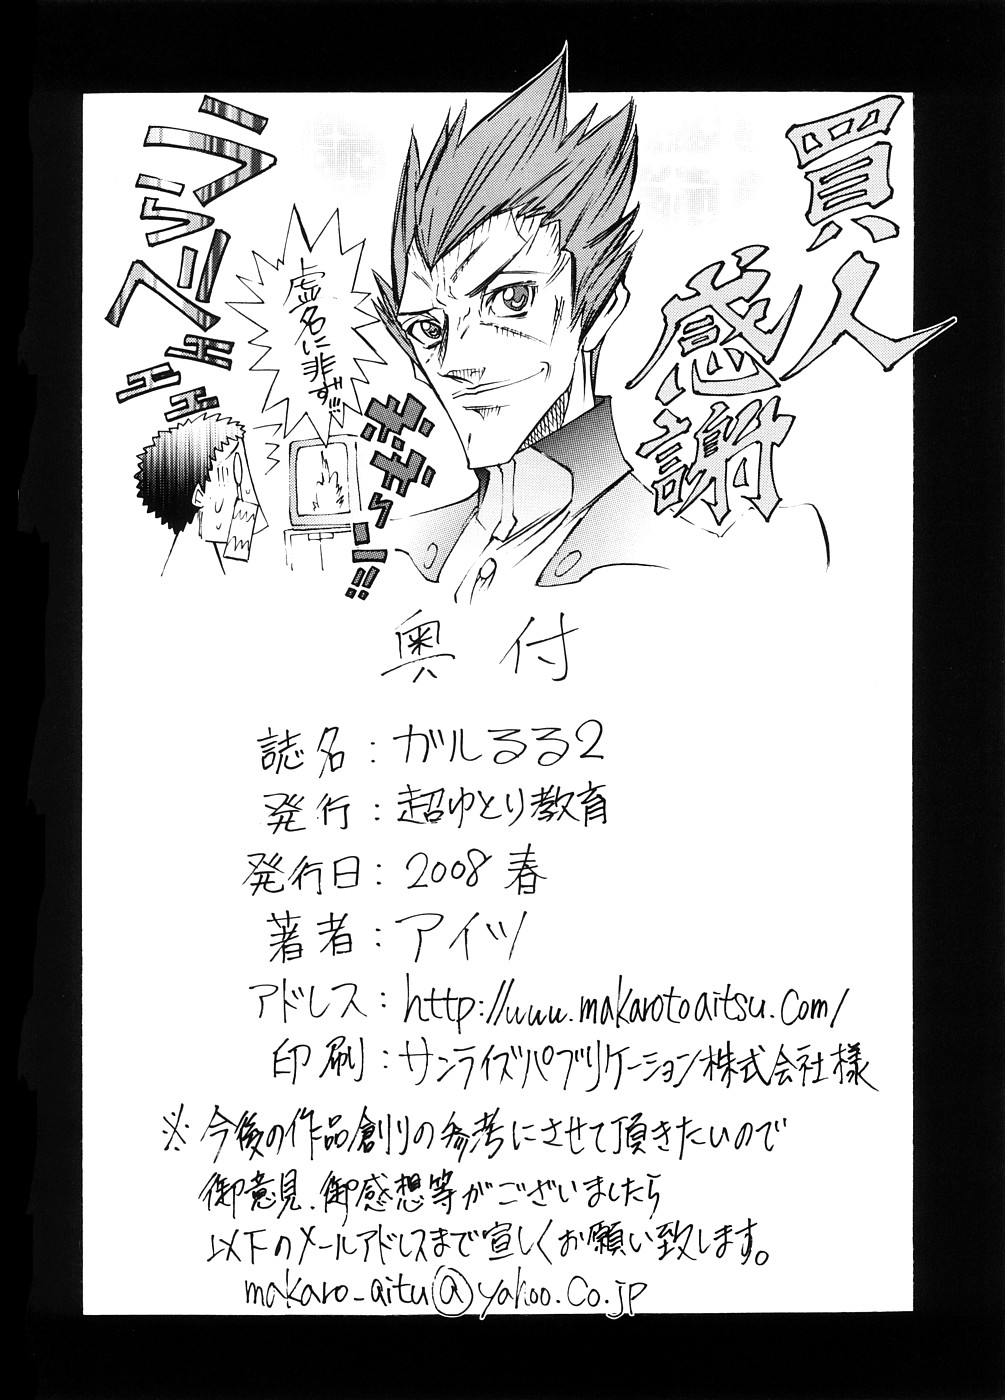 買人
感謝
ララら
べべ
エエエ
虚名に非ず!!!
奥付
誌名：ガルるる2
発行：超ゆとり教育
発行日：2008 春
著者：アイツ
アドレス：http://www.makarotoaitsu.com/
印刷：サンライズパブリケーション株式会社様
※今後の作品創りの参考にさせて頂きたいので
御意見、御感想等がございましたら
以下のメールアドレスまで宜しくお願い致します。
makaro-aitu@yahoo.co.jp